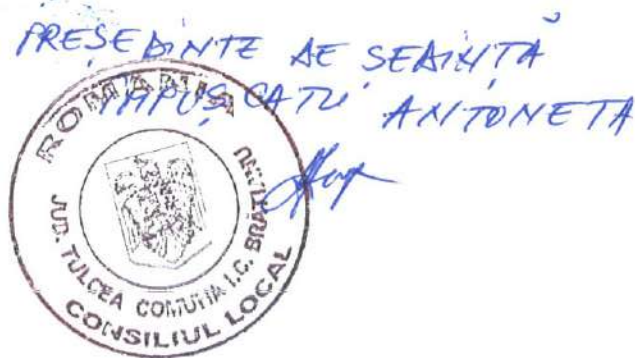 PREȘEDINTE DE ȘEDINȚĂ
IMPUȘCATU ANTONETA
ROMANIA
JUD. TULCEA COMUNA I.C. BRĂTIANU
CONSILIUL LOCAL